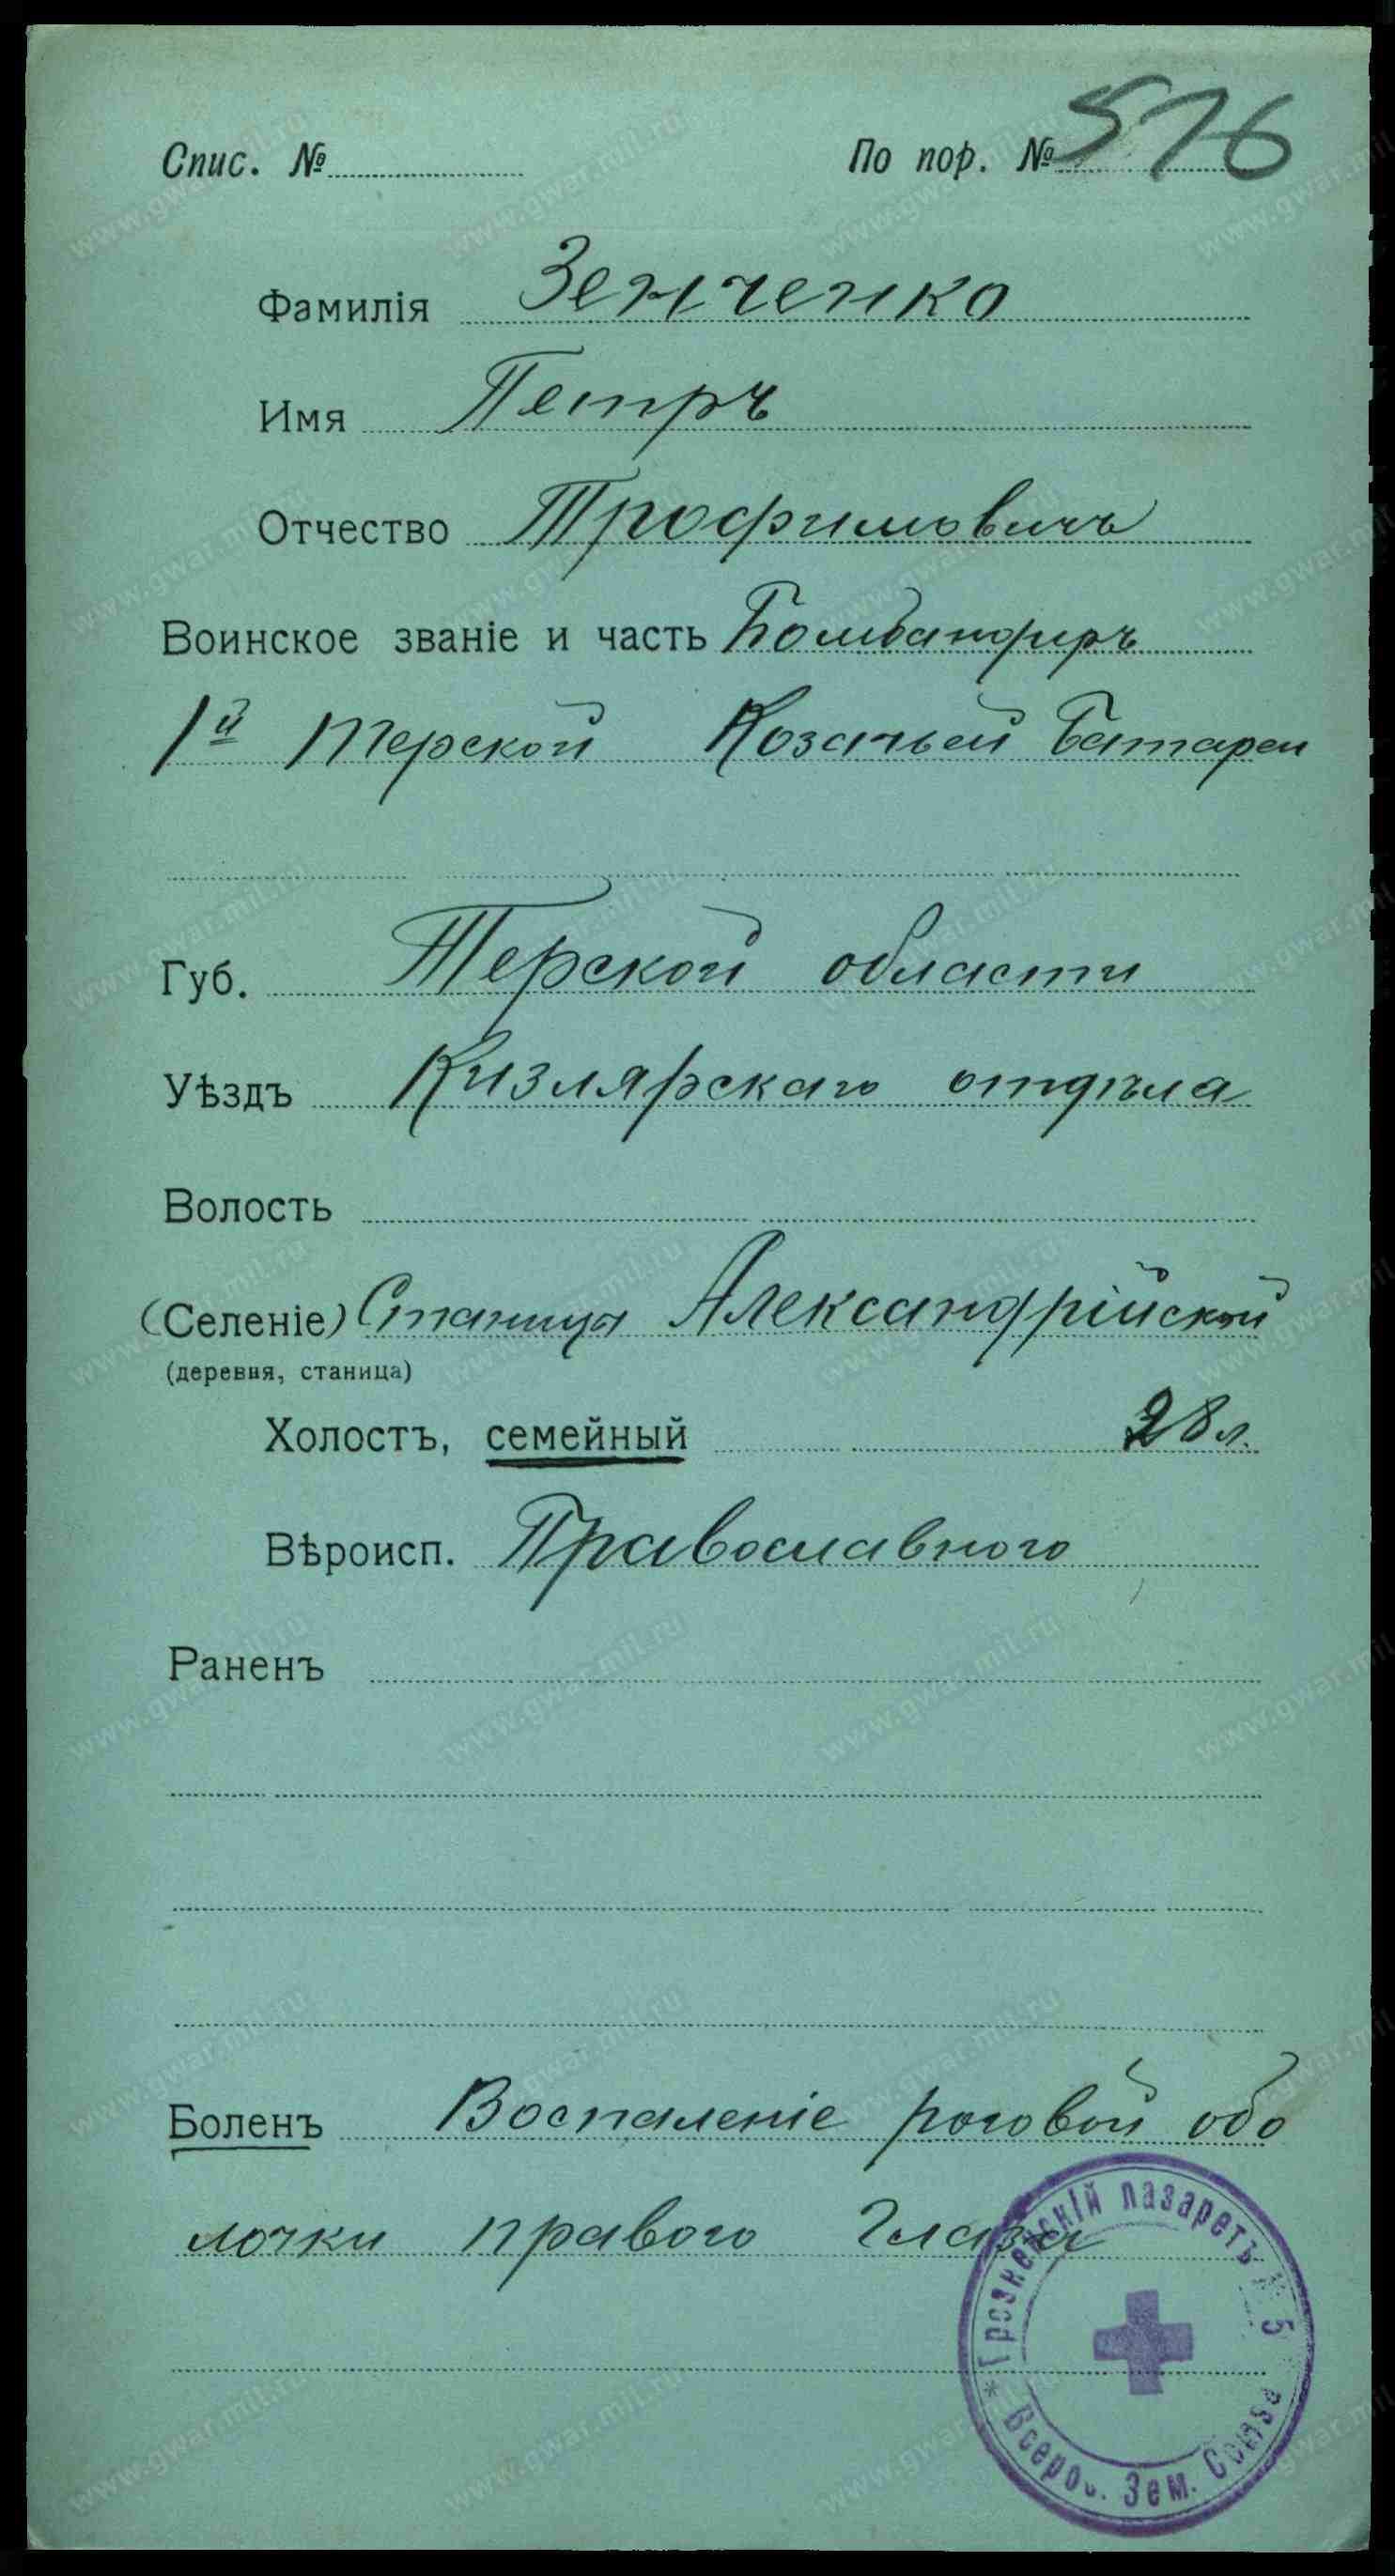 Спис. № По пор. № 576
Фамилія Зенченко
Имя Петръ
Отчество Трофимовичъ
Воинское званіе и часть Бомбандиръ
1й Терской Козачьей Батареи
Губ. Терской области
Уѣздъ Кизлярскаго отдѣла
Волость
(Селеніе) Станица Александрійской
(деревня, станица)
Холостъ, семейный 28 л.
Вѣроисп. Православного
Раненъ
Боленъ Воспаленіе роговой обо
лочки правого глаза
Грозненскій лазаретъ № 5
* Всерос. Зем. Союза
www.gwar.mil.ru